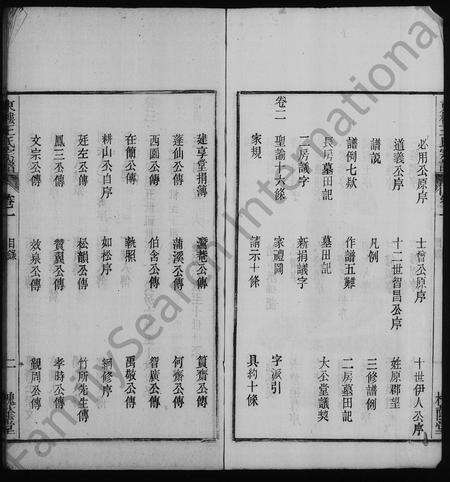 必用公原序 士僧公原序 十世伊人公序
道義公序 十二世智昌公序 姓原郡望
譜說 凡例 三修譜例
譜例七欵 作譜五難 二房墓田記
長房墓田記 墓田記 大公堂議契
二房議字 新捐議字 字派引
卷二
聖諭十六條 家禮圖
家規 請示十條 具約十條
建享堂捐簿 篔齋公傳
蓬仙公傳 蒲溪公傳 何齋公傳
西園公傳 伯含公傳 公傳
在蘭公傳 執照 禹敬公傳
耕山公自序 如松序 綱修序
廷左公傳 松韻公傳 竹所先生傳
鳳三公傳 贊襄公傳 孝時公傳
文宗公傳 效泉公傳 觀周公傳
王氏 目錄 二
FamilySearch International